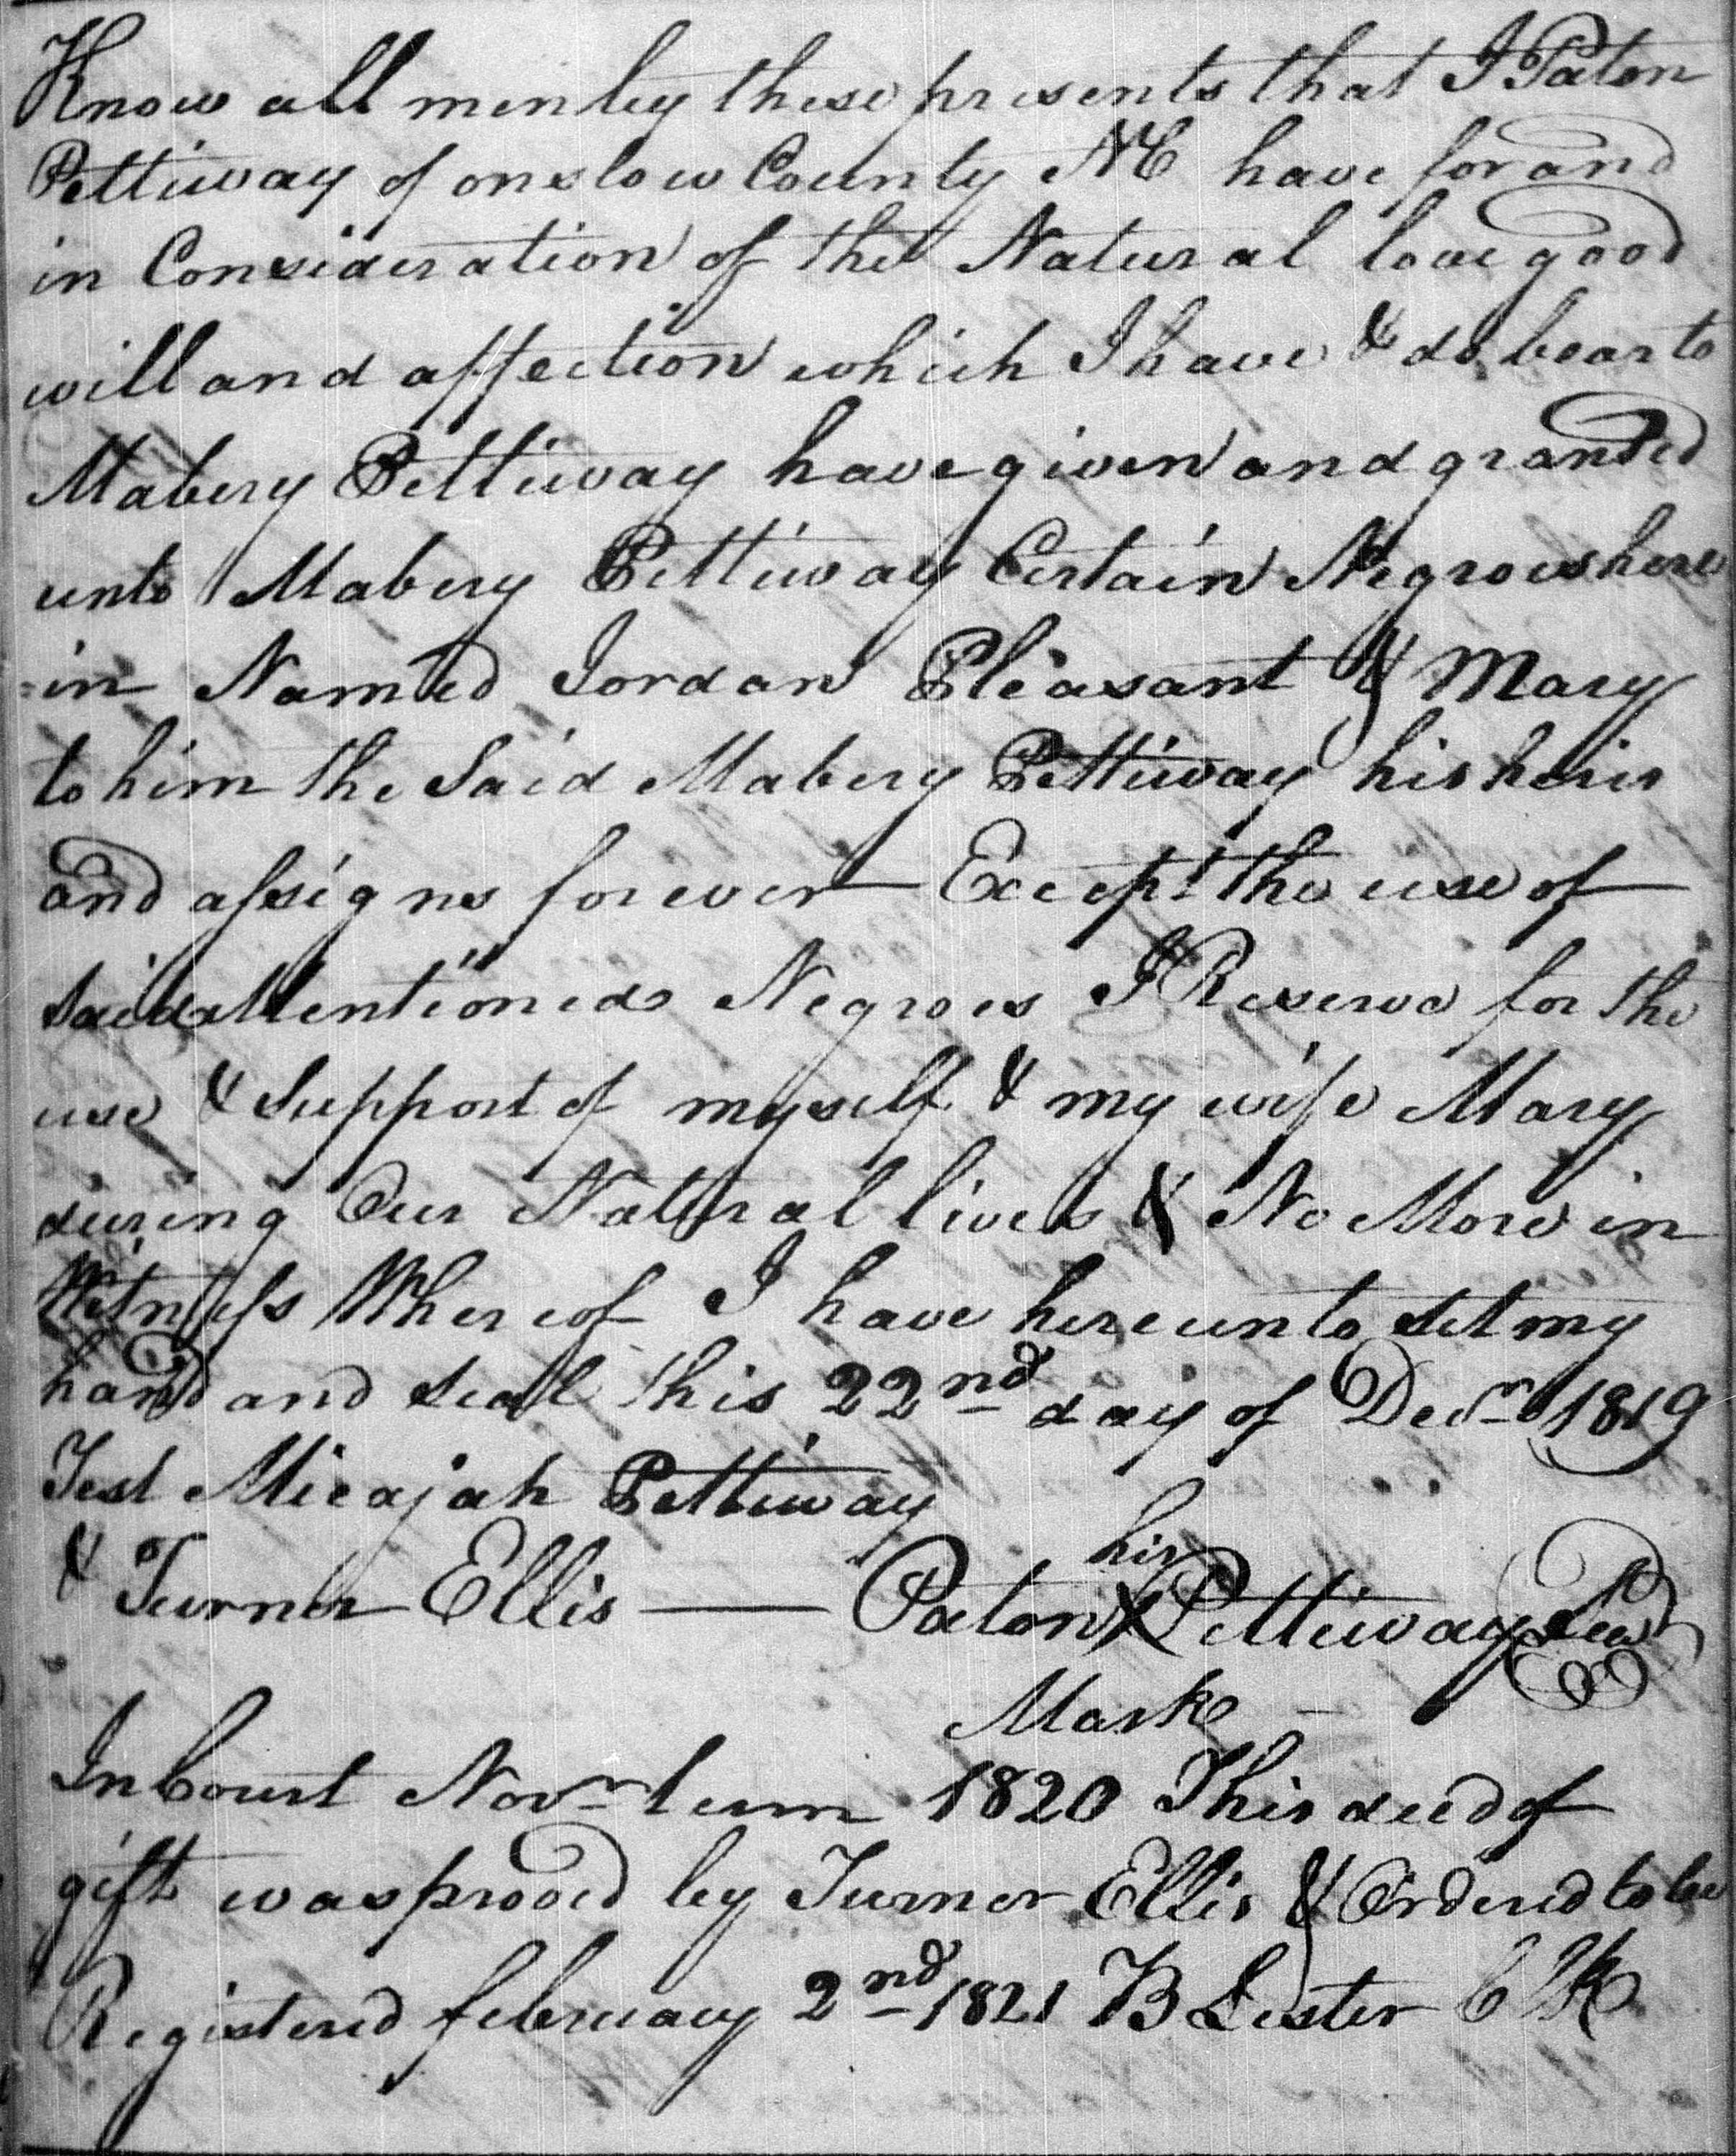 Know all men by these presents that I Paton
Pettiway of onslow County NC have for and
in Consideration of the Natural love good
will and affection which I have & do bear to
Mabery Pettiway have given and granted
unto Mabery Pettiway Certain Negroes here
=in Named Jordan Pleasant & Mary
to him the Said Mabery Pettiway his heirs
and assigns forever Except the use of
said Mentioned Negroes I Reserve for the
use & Support of myself & my wife Mary
during Our Natural lives & No More in
Witness Whereof I have hereunto set my
hand and seal this 22nd day of Decr 1819
Test Micajah Pettiway
his
& Turner Ellis — Paton X Pettiway Seal
Mark
In Court Novr term 1820 This deed of
gift was prooved by Turner Ellis & Ordered to be
Registered february 2nd 1821 B Lester Clk